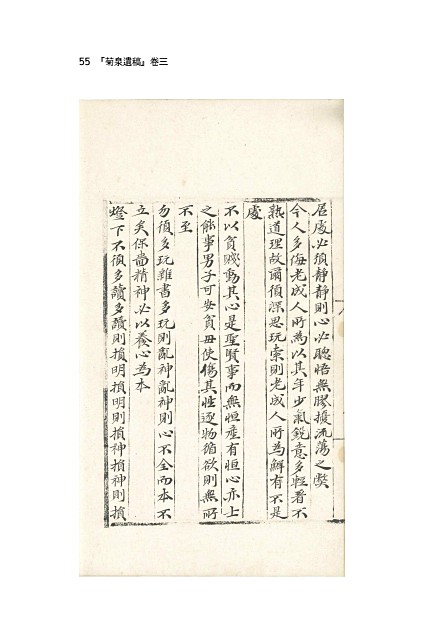 55 『菊泉遺稿』卷三
居處必須靜靜則心必聰悟無膠擾流蕩之獘
今人多侮老成人所為以其年少氣銳意多輕看不
熟道理故爾須深思玩索則老成人所為鮮有不是
處
不以貧賤動其心是聖賢事而無恒產有恒心亦士
之能事男子可安貧毋使傷其性逐物循欲則無所
不至
勿須多玩雜書多玩則亂神亂神則心不全而本不
立矣保嗇精神必以養心為本
燈下不須多讀多讀則損明損明則損神損神則損